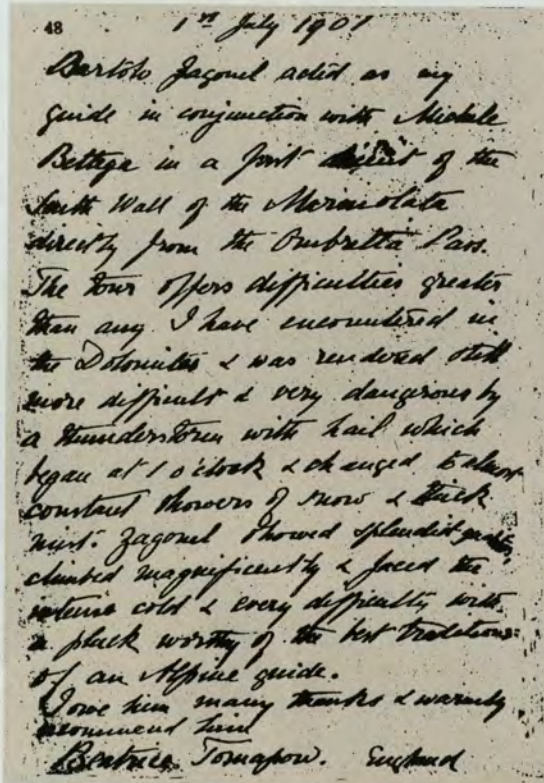 48
1st July 1901
Bartolo Zagonel acted as my
guide in conjunction with Michele
Bettega in a first ascent of the
South Wall of the Marmolata
directly from the Ombretta Pass.
The tour offers difficulties greater
than any I have encountered in
the Dolomites & was rendered still
more difficult & very dangerous by
a thunderstorm with hail which
began at 1 o'clock & changed to almost
constant showers of snow & thick
mist. Zagonel showed splendid
climbed magnificently & faced the
intense cold & every difficulty with
a pluck worthy of the best traditions
of an Alpine guide.
I owe him many thanks & warmly
recommend him
Beatrice Tomasson. England